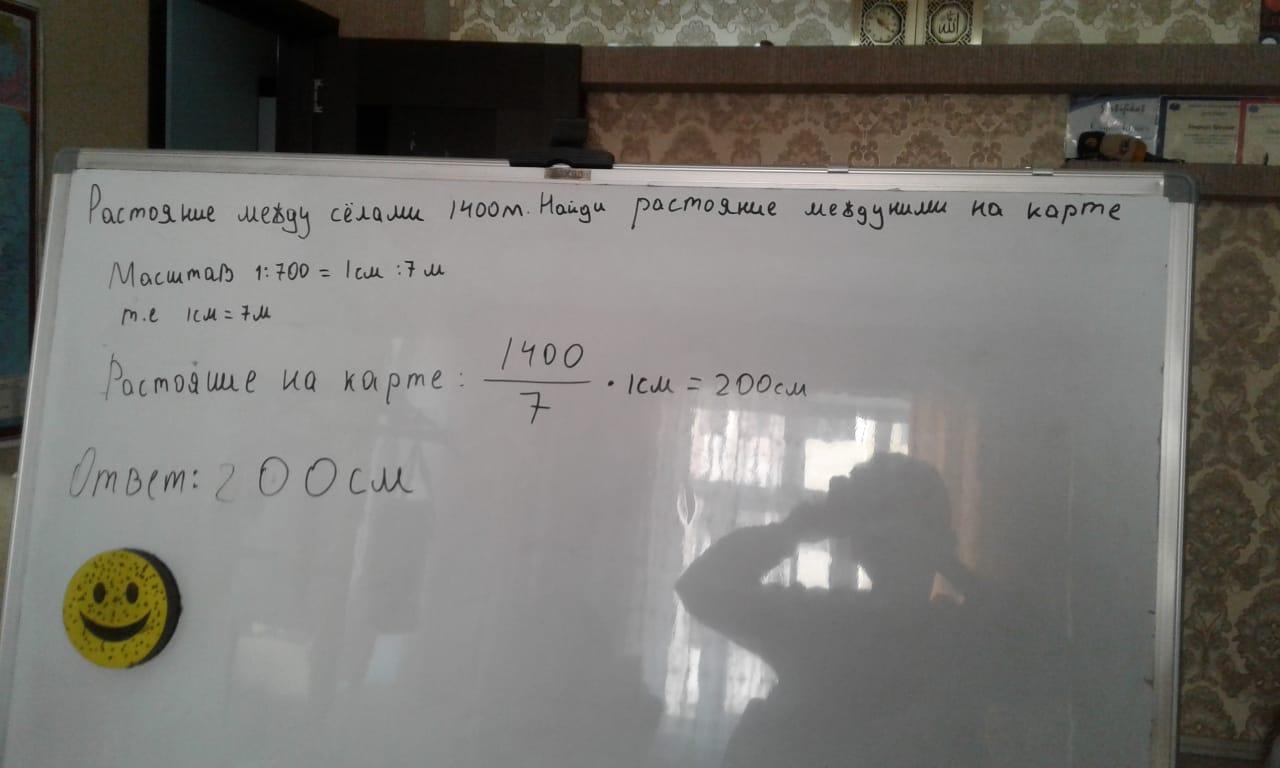 Растояние между сёлами 1400м. Найди растояние междуними на карте
Масштаб 1:700 = 1см :7м
т.е 1см = 7м
Растояние на карте: 1400/7 · 1см = 200см
Ответ: 200см